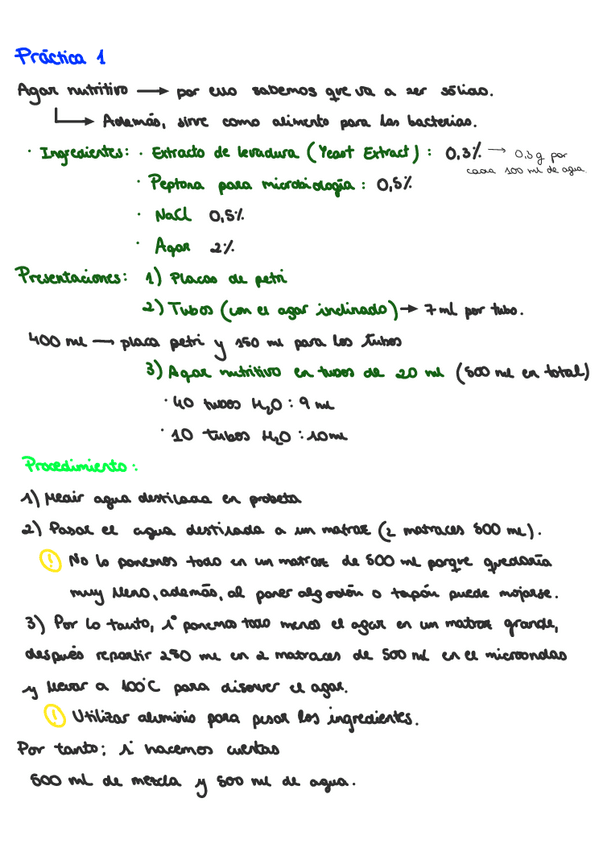 Práctica 1
Agar nutritivo → por eso sabemos que va a ser sólido.
↳ Además, sirve como alimento para las bacterias.
· Ingredientes: · Extracto de levadura (Yeast Extract): 0,3% → 0,3g por cada 100 ml de agua
· Peptona para microbiología: 0,5%
· NaCl 0,5%
· Agar 2%
Presentaciones: 1) Placas de petri
2) Tubos (con el agar inclinado) → 7 ml por tubo.
400 ml → placa petri y 150 ml para los tubos
3) Agar nutritivo en tubos de 20 ml (500 ml en total)
· 40 tubos H₂O: 9 ml
· 10 tubos H₂O: 10 ml
Procedimiento:
1) Medir agua destilada en probeta
2) Pasar el agua destilada a un matraz (2 matraces 500 ml).
! No lo ponemos todo en un matraz de 500 ml porque quedaría
muy lleno, además, al poner algodón o tapón puede mojarse.
3) Por lo tanto, 1º ponemos todo menos el agar en un matraz grande,
después repartir 250 ml en 2 matraces de 500 ml en el microondas
y llevar a 100°C para disolver el agar.
! Utilizar aluminio para pesar los ingredientes.
Por tanto; si hacemos cuentas
500 ml de mezcla y 500 ml de agua.